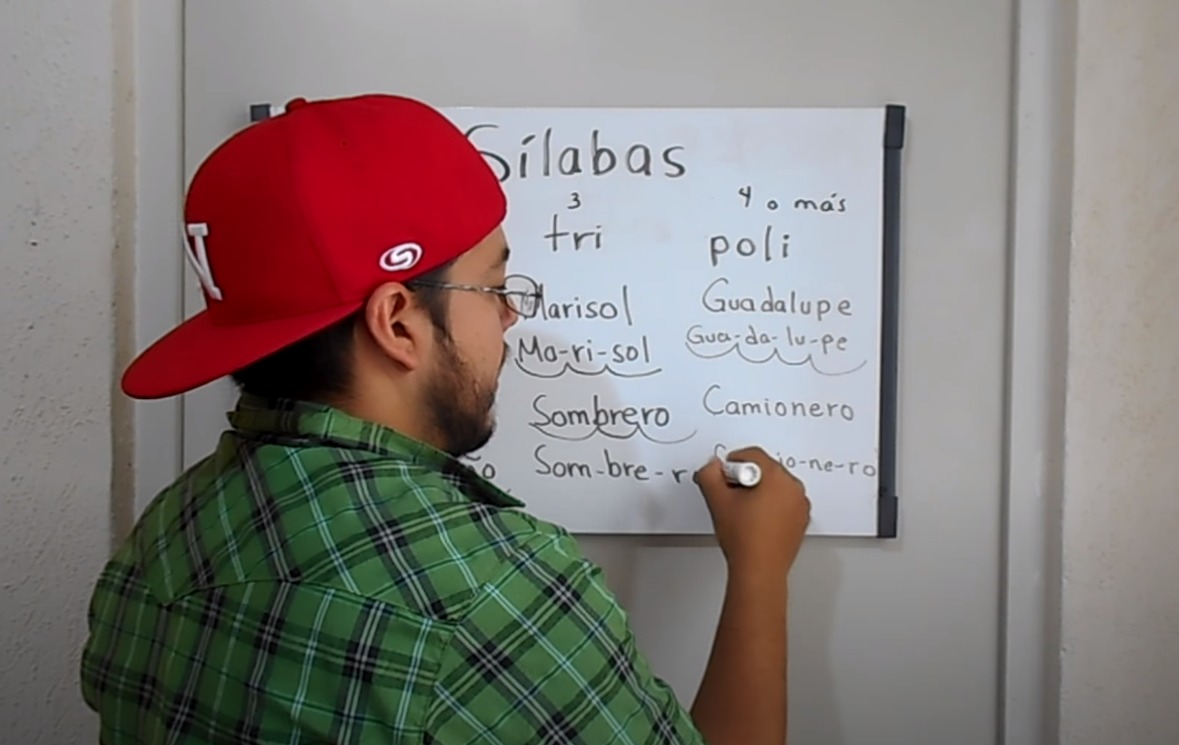 Sílabas
3
tri
4 o más
poli
Marisol
Guadalupe
Ma-ri-sol
Gua-da-lu-pe
Sombrero
Camionero
Som-bre-ro
io-ne-ro